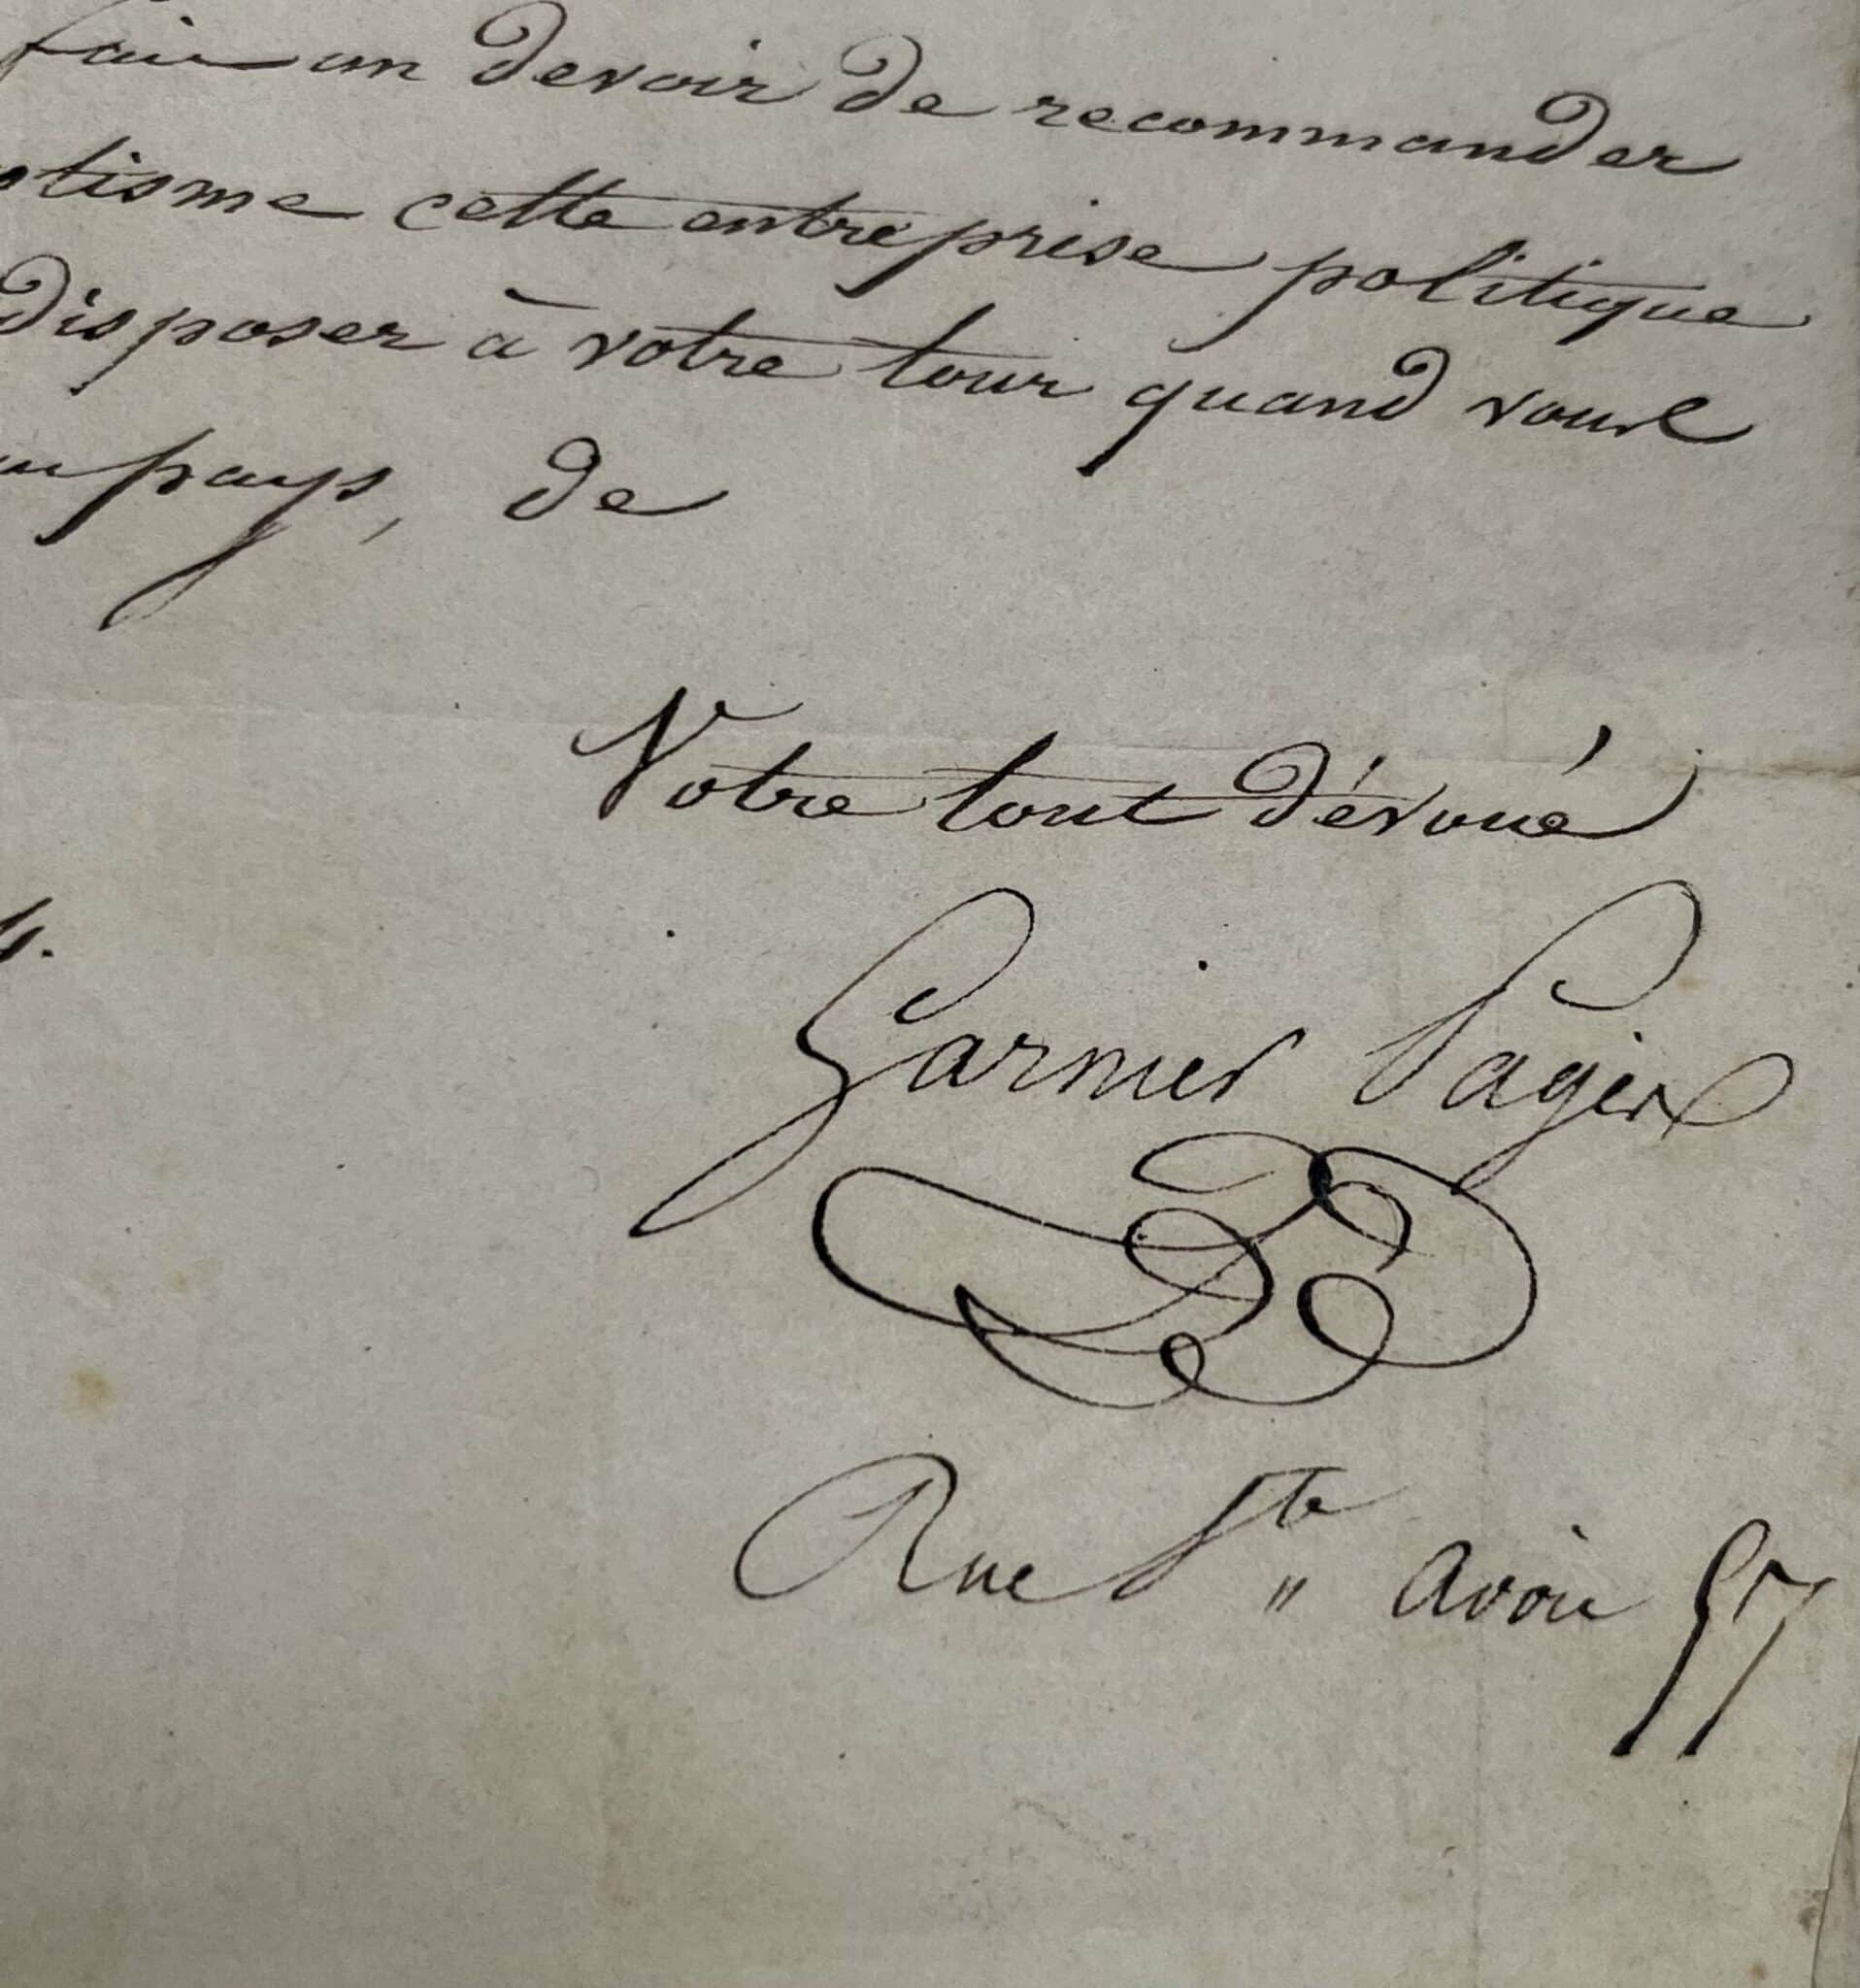 fais un devoir de recommander
otisme cette entreprise politique
disposer à votre tour quand vous
pays, de
Votre tout dévoué
4.
Garnier Pagès
Rue Ste avoie 57